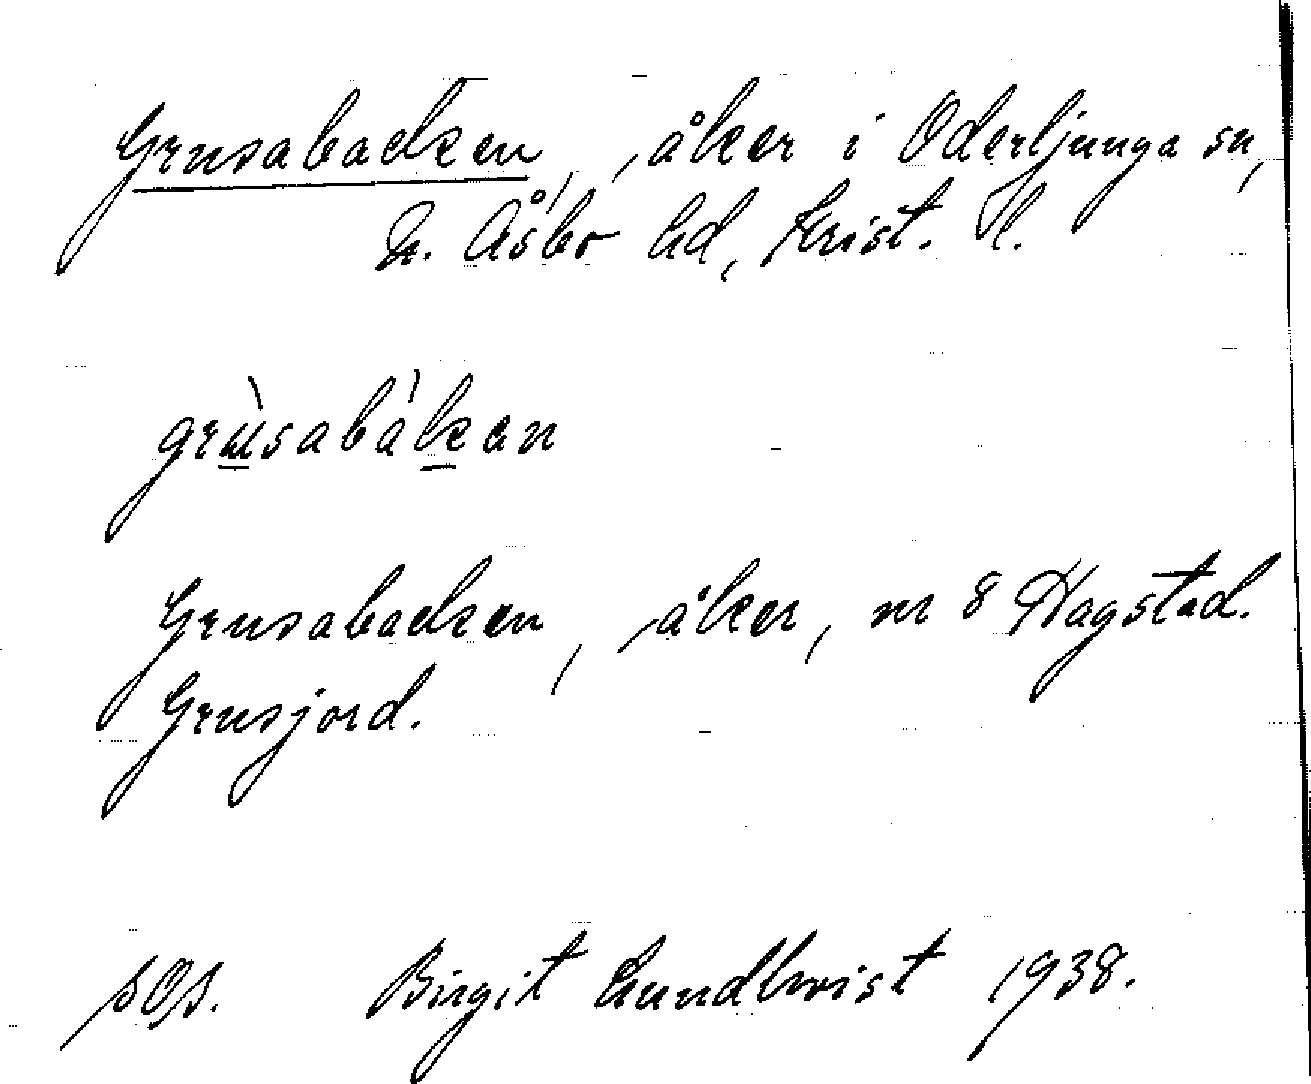 Grusabacken, åker i Oderljunga sn,
N. Åsbo hd, Krist. l.
grùsabákan
Grusabacken, åker, nr 8 Hagstad.
Grusjord.
Birgit Lundkvist 1938.